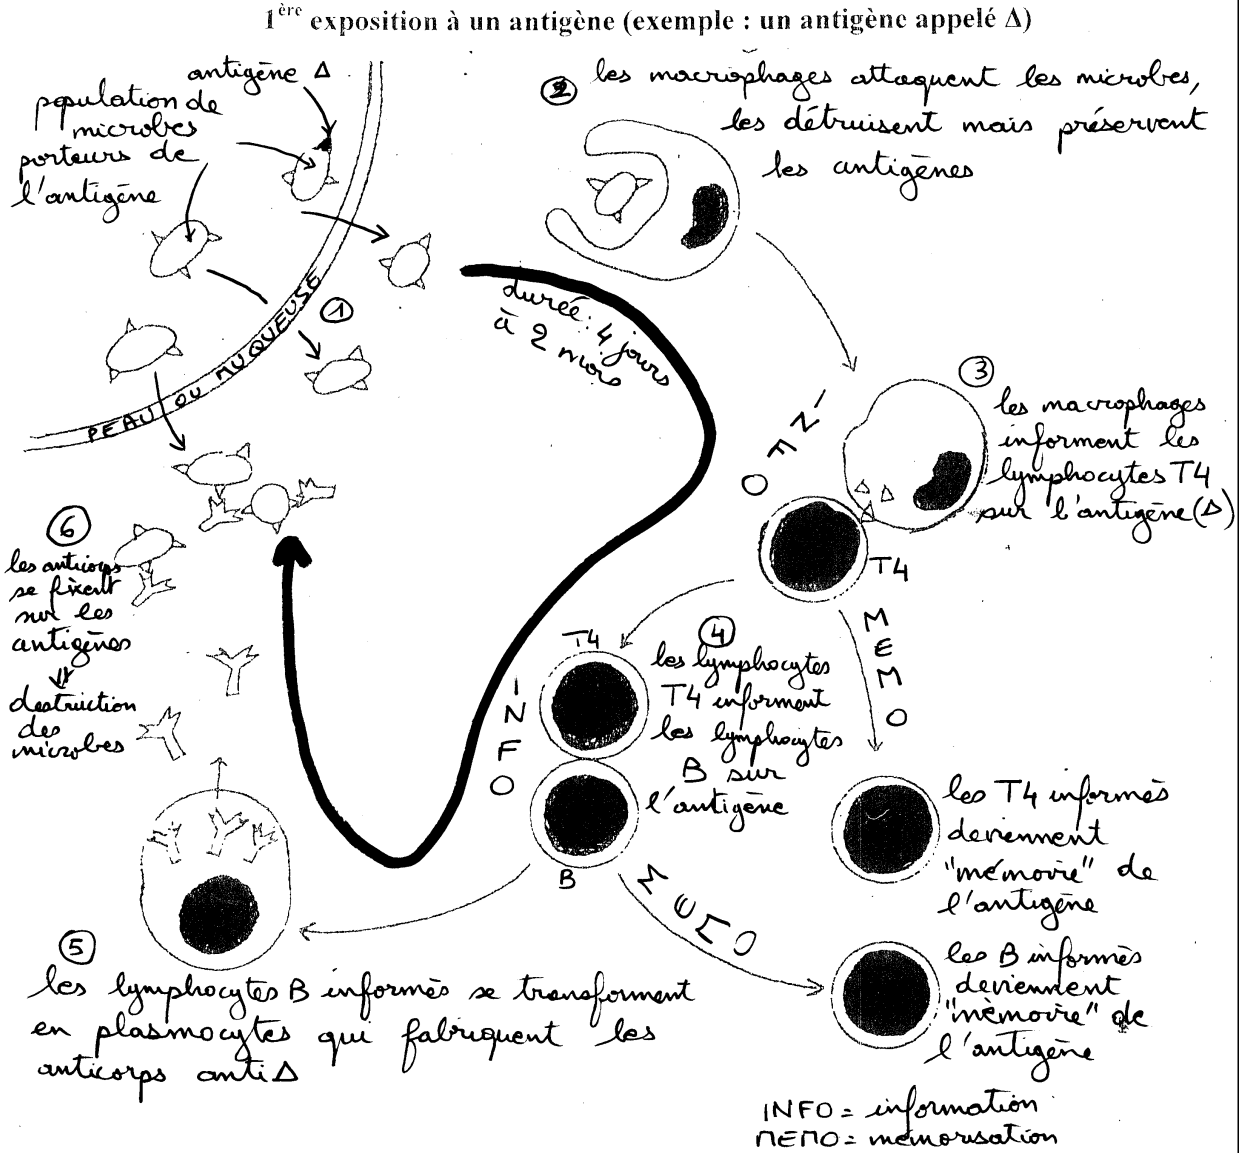 1ère exposition à un antigène (exemple : un antigène appelé Δ)
antigène Δ
population de
microbes
porteurs de
l'antigène
PEAU OU MUQUEUSE
①
durée : 4 jours
à 2 mois
②
les macrophages attaquent les microbes,
les détruisent mais préservent
les antigènes
INFO
③
les macrophages
informent les
lymphocytes T4
sur l'antigène (Δ)
T4
MEMO
T4
④
les lymphocytes
T4 informent
les lymphocytes
B sur
l'antigène
INFO
B
MEMO
les T4 informés
deviennent
"mémoire" de
l'antigène
les B informés
deviennent
"mémoire" de
l'antigène
⑤
les lymphocytes B informés se transforment
en plasmocytes qui fabriquent les
anticorps anti Δ
⑥
les anticorps
se fixent
sur les
antigènes
⇓
destruction
des
microbes
INFO = information
MEMO = mémorisation